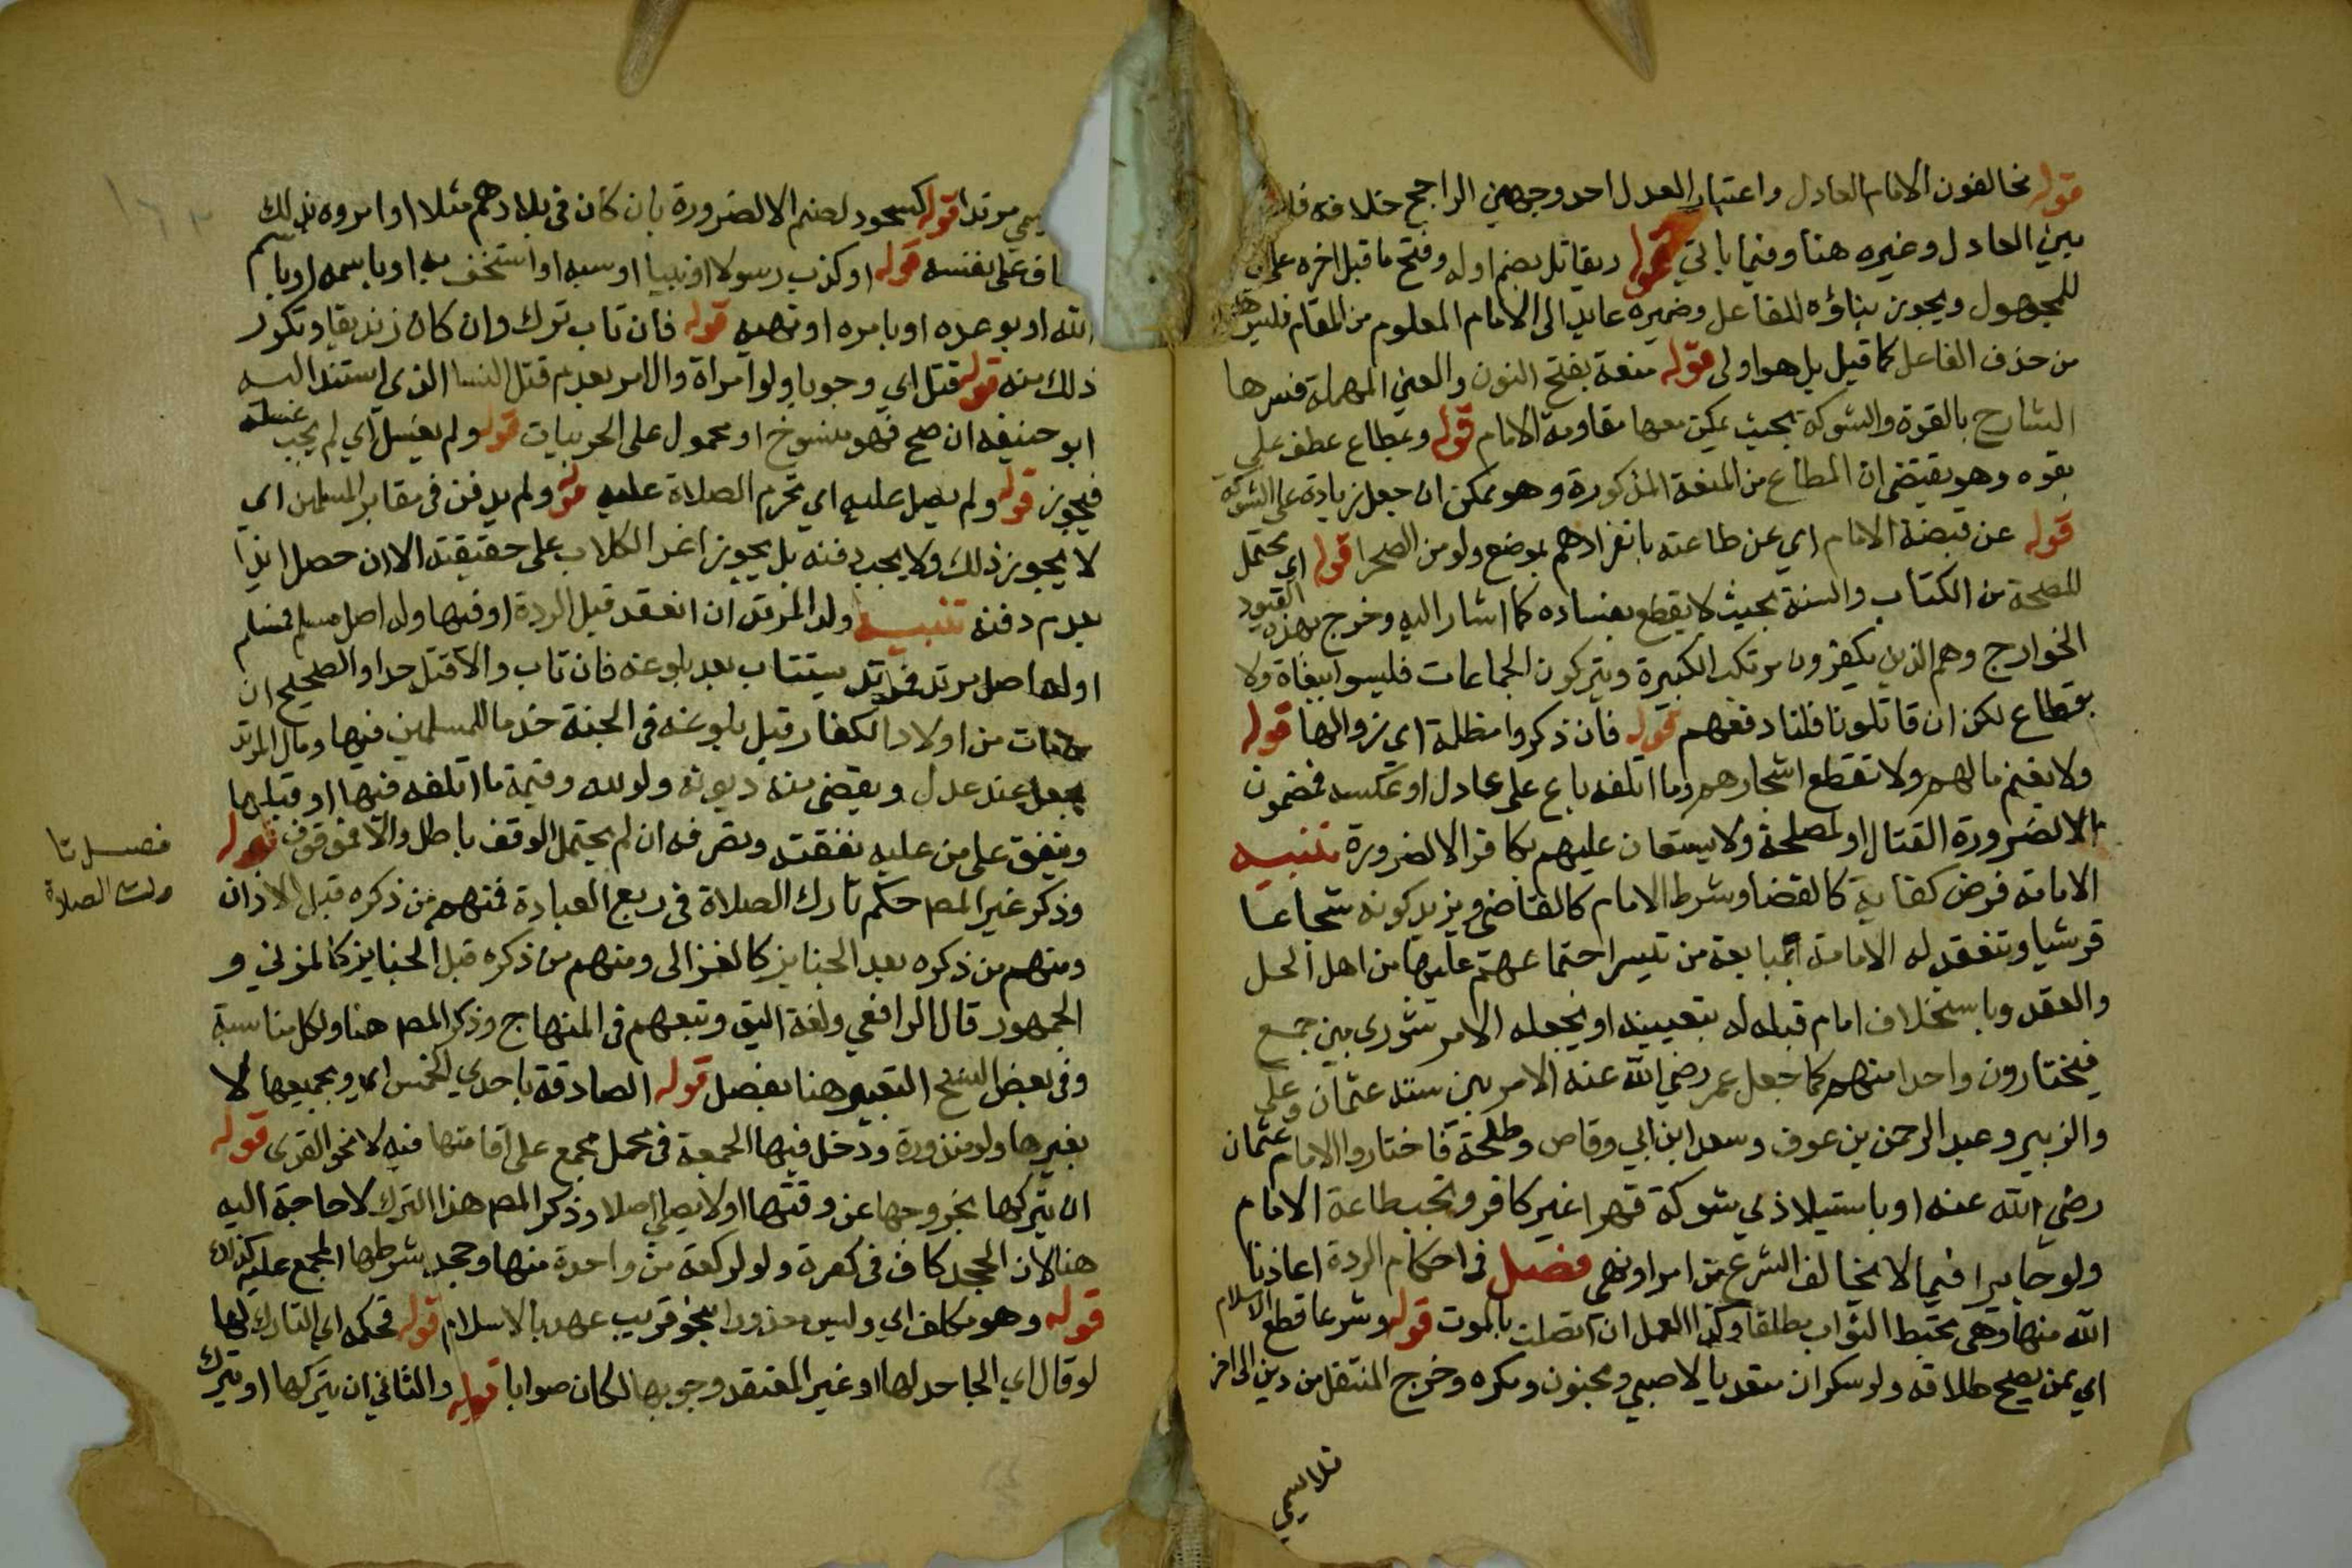 قوله مخالفون الامام العادل واعتبار العدل احد وجهين الراجح خلافه فلا
بين العادل وغيره هنا وفيما ياتي قوله ويقاتل بضم اوله وفتح ما قبل اخره على
للمجهول ويجوز بناؤه للفاعل وضميره عايد الى الامام المعلوم من المقام فليس هذا
من حذف الفاعل كما قيل بل هو اولى قوله منعة بفتح النون والعين المهملة فسرها
الشارح بالقوة والشوكة بحيث يمكن معها مقاومة الامام قوله ومطاع عطف على
بقوه وهو يقتضي ان المطاع من المنعة المذكورة وهو ممكن ان جعل زيادة على الشوكة
قوله عن قبضة الامام اي عن طاعته بانفرادهم بموضع ولو من الصحرا قوله اي محتمل
للصحة من الكتاب والسنة بحيث لا يقطع بفساده كما اشار اليه وخرج بهذه القيود
الخوارج وهم الذين يكفرون مرتكب الكبيرة ويتركون الجماعات فليسوا ببغاة ولا
بقطاع لكن ان قاتلونا فلنا دفعهم قوله فان ذكروا مظلمة اي زوالها قوله
ولا يغنم مالهم ولا تقطع اشجارهم وما اتلفه باغ على عادل او عكسه فمضمون
الا لضرورة القتال او لمصلحة ولا يستعان عليهم بكافر الا لضرورة تنبيه
الامامة فرض كفاية كالقضا وشرط الامام كالقاضي ويزيد كونه شجاعا
قرشيا وتنعقد له الامامة بمبايعة من تيسر اجتماعهم عليها من اهل الحل
والعقد وباستخلاف امام قبله له بتعيينه او يجعله الامر شورى بين جمع
فيختارون واحدا منهم كما جعل عمر رضي الله عنه الامر بين ستة عثمان وعلي
والزبير وعبد الرحمن بن عوف وسعد ابن ابي وقاص وطلحة فاختاروا الامام عثمان
رضي الله عنه او باستيلا ذي شوكة قهرا غير كافر وتجب طاعة الامام
ولو جايرا فيما لا يخالف الشرع من امر او نهي فصل في احكام الردة اعاذنا
الله منها وهي تحبط الثواب مطلقا وكذا العمل ان اتصلت بالموت قوله وشرعا قطع الاسلام
اي ممن يصح طلاقه ولو سكران متعديا لا صبي ومجنون ومكره وخرج المنتقل من دين الى اخر
فلا يسمي
يسمي مرتدا قوله كسجود لصنم الا لضرورة بان كان في بلادهم مثلا او امروه بذلك
خاف على نفسه قوله او كذب رسولا او نبيا او سبه او استخف به او باسمه او باسم
الله او بوعده او بامره او نهيه قوله فان تاب ترك وان كان زنديقا وتكرر
ذلك منه قوله قتل اي وجوبا ولو امراة والامر بعدم قتل النسا الذي استند اليه
ابو حنيفه ان صح فهو منسوخ او محمول على الحربيات قوله ولم يغسل اي لم يجب غسله
فيجوز قوله ولم يصل عليه اي تحرم الصلاة عليه قوله ولم يدفن في مقابر المسلمين اي
لا يجوز ذلك ولا يجب دفنه بل يجوز اغرا الكلاب على حقيقته الا ان حصل ايذا
بعدم دفنه تنبيه ولد المرتد ان انعقد قبل الردة او فيها وله اصل مسلم فمسلم
او له اصل مرتد فمرتد يستتاب بعد بلوغه فان تاب والا قتل حدا والصحيح ان
من مات من اولاد الكفار قبل بلوغه في الجنة خدما للمسلمين فيها ومال المرتد
يجعل عند عدل ويقضى منه ديونه ولو لله وقيمة ما اتلفه فيها او قبلها
وينفق على من عليه نفقته وتصرفه ان لم يحتمل الوقف باطل والا فموقوف قوله
فصل تا
رك الصلاة
وذكر غير المصـ حكم تارك الصلاة في ربع العبادة فمنهم من ذكره قبل الاذان
ومنهم من ذكره بعد الجنايز كالغزالى ومنهم من ذكره قبل الجنايز كالمزني و
الجمهور قال الرافعي ولعله اليق وتبعهم في المنهاج وذكر المصـ هنا ولكل مناسبة
وفي بعض النسخ التعبير هنا بفصل قوله الصادقة باحدي الخمس اي وبجميعها لا
بغيرها ولو منذورة ودخل فيها الجمعة في محل مجمع على اقامتها فيه لا نحو القرى قوله
ان يتركها بخروجها عن وقتها او لا يصلي اصلا وذكر المصـ هذا الترك لا حاجة اليه
هنا لان الجحد كاف في كفره ولو لركعة من واحدة منها وجحد شرطها المجمع عليه كذلك
قوله وهو مكلف اي وليس معذورا بنحو قرب عهد بالاسلام قوله فحكمه اي التارك لها
لو قال اي الجاحد لها او غير المعتقد وجوبها لكان صوابا قوله والثاني ان يتركها او يترك